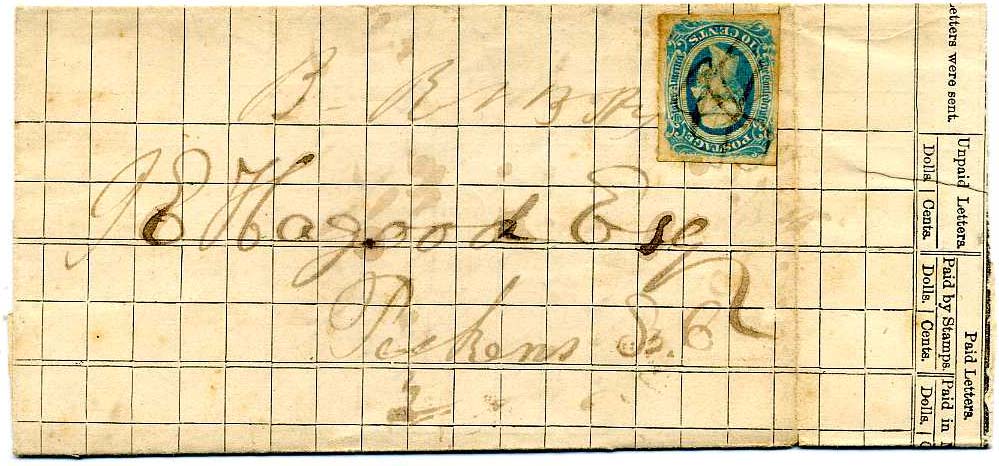 10 CENTS
The Confederate
States of America
POSTAGE
J E Hagood Esq
Pickens S. C
Letters were sent.
Unpaid Letters.
Dolls. Cents.
Paid Letters.
Paid by Stamps. Paid in
Dolls. Cents. Dolls.